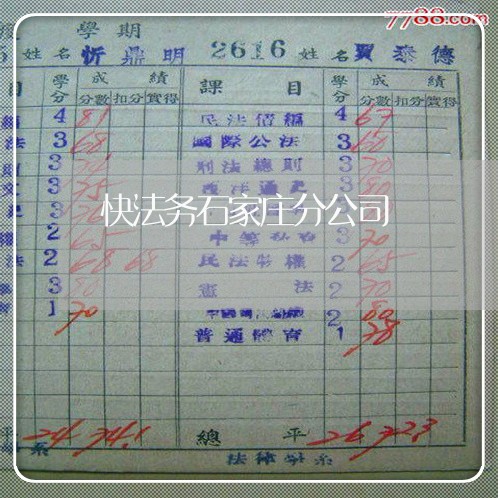 7788.com
學期
姓名 忻鼎明 2616 姓名 賈泰德
目 學分 成績 課目 學分 成績
分數 扣分 實得 分數 扣分 實得
4 81 民法債編 4 67
法 3 68 國際公法 3 60
3 刑法總則 3 70
3 75 3 80
快法务石家庄分公司
2 65 3 70
法 2 68 68 民法物權 2 65
3 80 憲法 2 70
1 70 2 80
普通體育 1 78
平 24 74.1 總平 26 72.3
系 法律學系